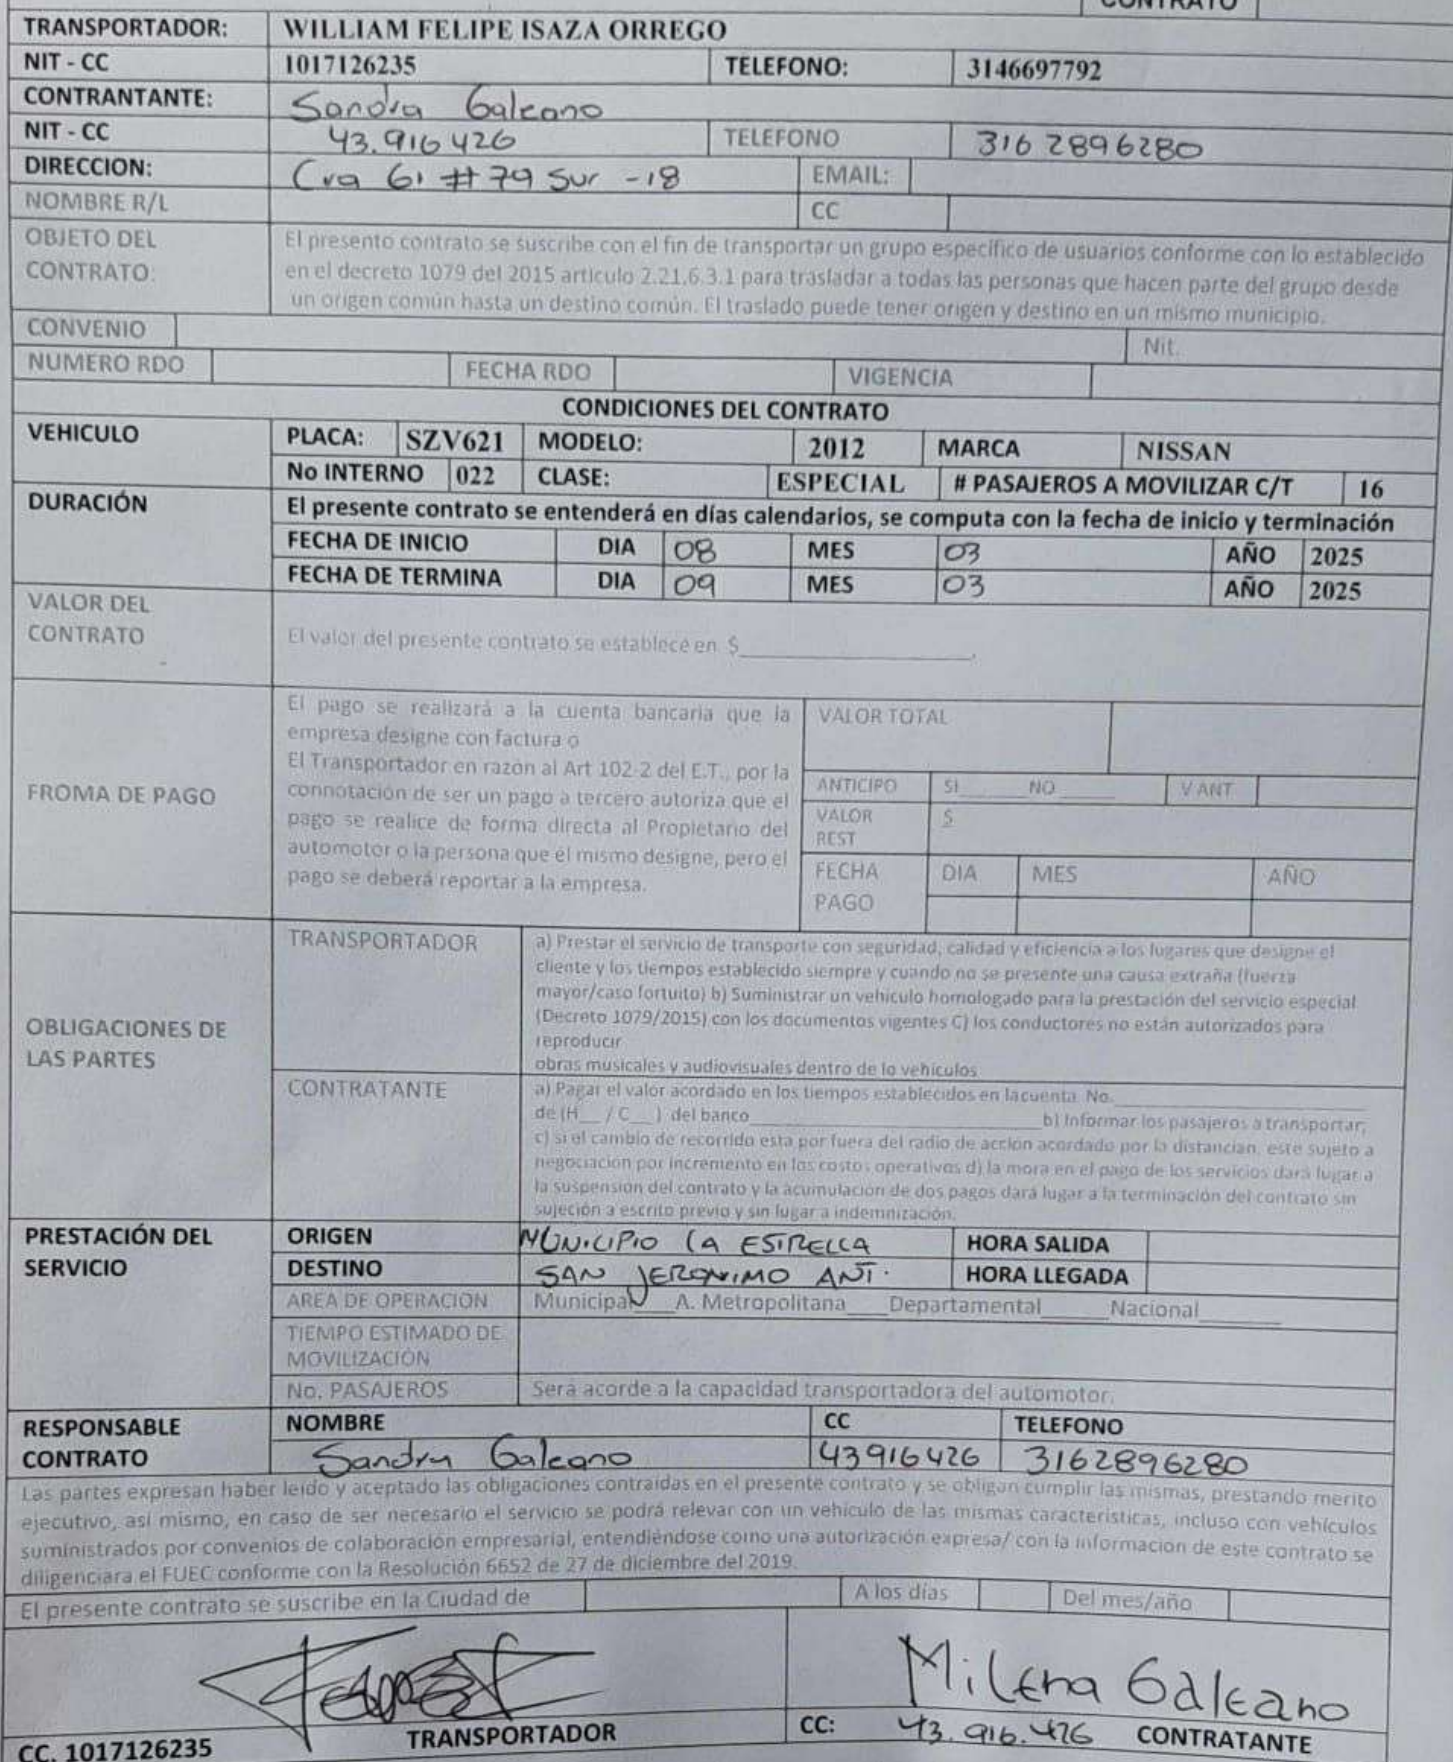 CONTRATO
TRANSPORTADOR: WILLIAM FELIPE ISAZA ORREGO
NIT - CC 1017126235 TELEFONO: 3146697792
CONTRANTANTE: Sandra Galeano
NIT - CC 43.916426 TELEFONO 316 2896280
DIRECCION: Cra 61 # 79 Sur - 18 EMAIL:
NOMBRE R/L CC
OBJETO DEL CONTRATO:
El presento contrato se suscribe con el fin de transportar un grupo especifico de usuarios conforme con lo establecido
en el decreto 1079 del 2015 articulo 2.21.6.3.1 para trasladar a todas las personas que hacen parte del grupo desde
un origen común hasta un destino común. El traslado puede tener origen y destino en un mismo municipio.
CONVENIO Nit.
NUMERO RDO FECHA RDO VIGENCIA
CONDICIONES DEL CONTRATO
VEHICULO PLACA: SZV621 MODELO: 2012 MARCA NISSAN
No INTERNO 022 CLASE: ESPECIAL # PASAJEROS A MOVILIZAR C/T 16
DURACIÓN El presente contrato se entenderá en días calendarios, se computa con la fecha de inicio y terminación
FECHA DE INICIO DIA 08 MES 03 AÑO 2025
FECHA DE TERMINA DIA 09 MES 03 AÑO 2025
VALOR DEL CONTRATO
El valor del presente contrato se establece en $____________________,
FROMA DE PAGO
El pago se realizará a la cuenta bancaria que la
empresa designe con factura o
El Transportador en razón al Art 102-2 del E.T., por la
connotación de ser un pago a tercero autoriza que el
pago se realice de forma directa al Propietario del
automotor o la persona que él mismo designe, pero el
pago se deberá reportar a la empresa.
VALOR TOTAL
ANTICIPO SI_____ NO_____ V ANT
VALOR REST $
FECHA PAGO DIA MES AÑO
OBLIGACIONES DE LAS PARTES
TRANSPORTADOR
a) Prestar el servicio de transporte con seguridad, calidad y eficiencia a los lugares que designe el
cliente y los tiempos establecido siempre y cuando no se presente una causa extraña (fuerza
mayor/caso fortuito) b) Suministrar un vehiculo homologado para la prestación del servicio especial
(Decreto 1079/2015) con los documentos vigentes C) los conductores no están autorizados para
reproducir
obras musicales y audiovisuales dentro de lo vehiculos
CONTRATANTE
a) Pagar el valor acordado en los tiempos establecidos en lacuenta No.____________________
de (H__ / C__ ) del banco____________________b) Informar los pasajeros a transportar;
c) si el cambio de recorrido esta por fuera del radio de acción acordado por la distancian, este sujeto a
negociación por incremento en los costos operativos d) la mora en el pago de los servicios dará lugar a
la suspensión del contrato y la acumulación de dos pagos dará lugar a la terminación del contrato sin
sujeción a escrito previo y sin lugar a indemnización.
PRESTACIÓN DEL SERVICIO
ORIGEN MUNICIPIO LA ESTRELLA HORA SALIDA
DESTINO SAN JERONIMO ANT. HORA LLEGADA
AREA DE OPERACIÓN Municipal____A. Metropolitana____Departamental_____Nacional_______
TIEMPO ESTIMADO DE MOVILIZACIÓN
No. PASAJEROS Será acorde a la capacidad transportadora del automotor.
RESPONSABLE CONTRATO
NOMBRE CC TELEFONO
Sandra Galeano 43916426 3162896280
Las partes expresan haber leido y aceptado las obligaciones contraidas en el presente contrato y se obligan cumplir las mismas, prestando merito
ejecutivo, así mismo, en caso de ser necesario el servicio se podrá relevar con un vehículo de las mismas características, incluso con vehículos
suministrados por convenios de colaboración empresarial, entendiéndose como una autorización expresa/ con la informacion de este contrato se
diligenciara el FUEC conforme con la Resolución 6652 de 27 de diciembre del 2019.
El presente contrato se suscribe en la Ciudad de A los días Del mes/año
Milena Galeano
CC. 1017126235 TRANSPORTADOR CC: 43.916.426 CONTRATANTE